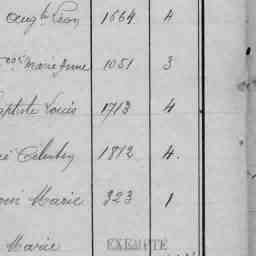 Augte Léon 1664 4
Marie Anne 1051 3
Baptiste Louis 1713 4
Célestin 1812 4.
Marie 323 1
Marie EXEMPTE